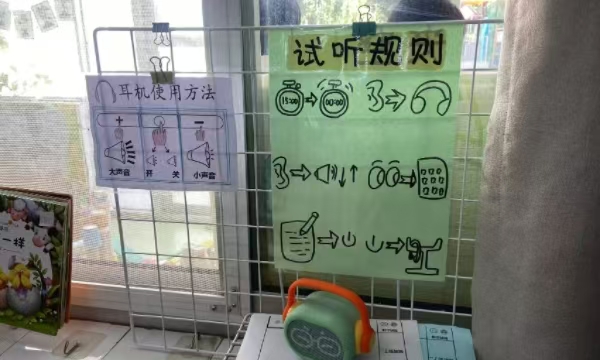 试听规则
15:00
00:00
耳机使用方法
+
-
大声音 开 关 小声音
一样